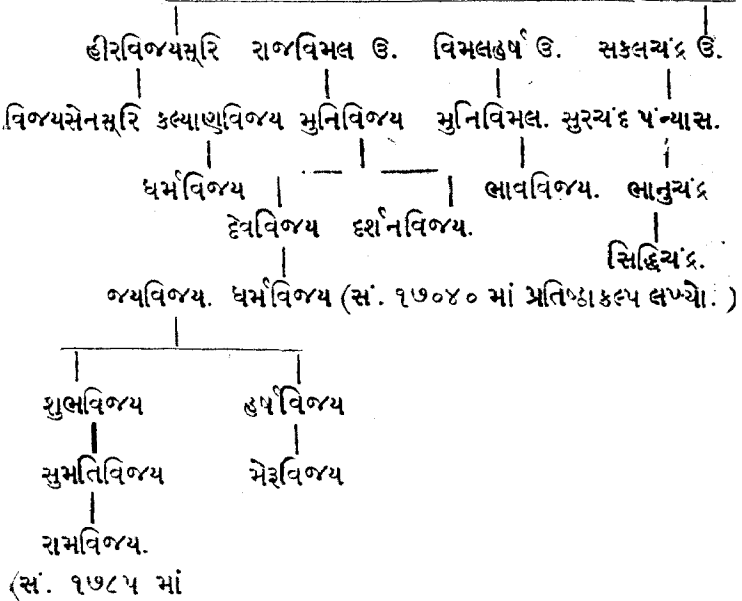 હીરવિજયસૂરિ રાજવિમલ ઉ. વિમલહર્ષ ઉ. સકલચંદ્ર ઉ.
વિજયસેનસૂરિ કલ્યાણવિજય મુનિવિજય મુનિવિમલ. સુરચંદ પંન્યાસ.
ધર્મવિજય ભાવવિજય. ભાનુચંદ્ર
દેવવિજય દર્શનવિજય.
સિદ્ધિચંદ્ર.
જયવિજય. ધર્મવિજય (સં. ૧૭૦૪૦ માં પ્રતિષ્ઠાકલ્પ લખ્યો. )
શુભવિજય હર્ષવિજય
સુમતિવિજય મેરૂવિજય
રામવિજય.
(સં. ૧૭૮૫ માં